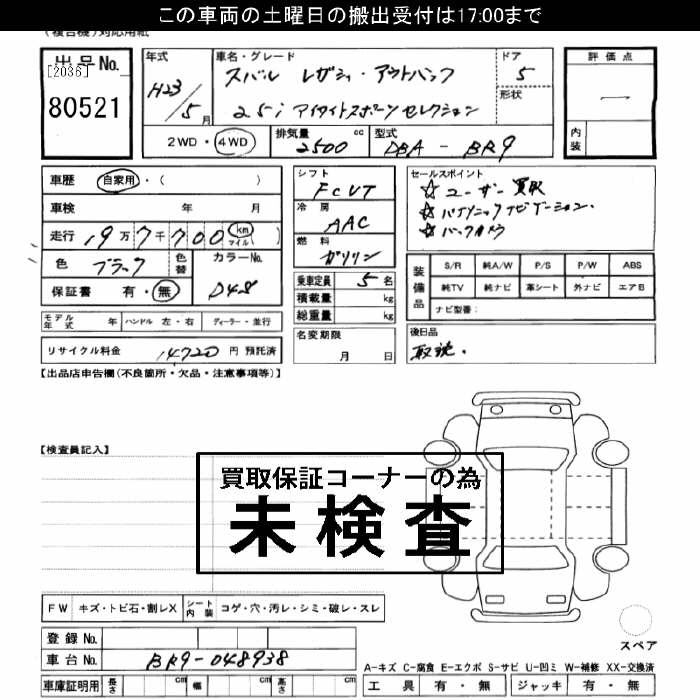 この車両の土曜日の搬出受付は17:00まで
(複合機)対応用紙
出品No.
[2036]
80521
年式
H23/5月
車名・グレード
スバル レガシィ・アウトバック
2.5i アイサイトスポーツセレクション
ドア
5
形状
2WD・4WD
排気量
2500 cc
型式
DBA - BR9
評価点
内装
車歴 自家用・( )
車検 年 月
走行 19万7千700 km マイル ( )
色 ブラック
色替
カラーNo.
D48
保証書 有・無
モデル年式 年 ハンドル 左・右 ディーラー・並行
リサイクル料金 14720 円 預託済
シフト
FCVT
冷房
AAC
燃料
ガソリン
乗車定員 5 名
積載量 kg
総重量 kg
名変期限
月 日
セールスポイント
☆ ユーザー買取
☆ パナソニックナビゲーション.
☆ バックカメラ
装備品
S/R 純A/W P/S P/W ABS
純TV 純ナビ 革シート 外ナビ エアB
ナビ型番:
後日品
取説.
【出品店申告欄(不良箇所・欠品・注意事項等)】
【検査員記入】
買取保証コーナーの為
未検査
FW キズ・トビ石・割レX シート内装 コゲ・穴・汚レ・シミ・破レ・スレ
登録No.
車台No. BR9-048938
車庫証明用 長さ cm 幅 cm 高さ cm
スペア
A-キズ C-腐食 E-エクボ S-サビ U-凹ミ W-補修 XX-交換済
工具 有・無 ジャッキ 有・無